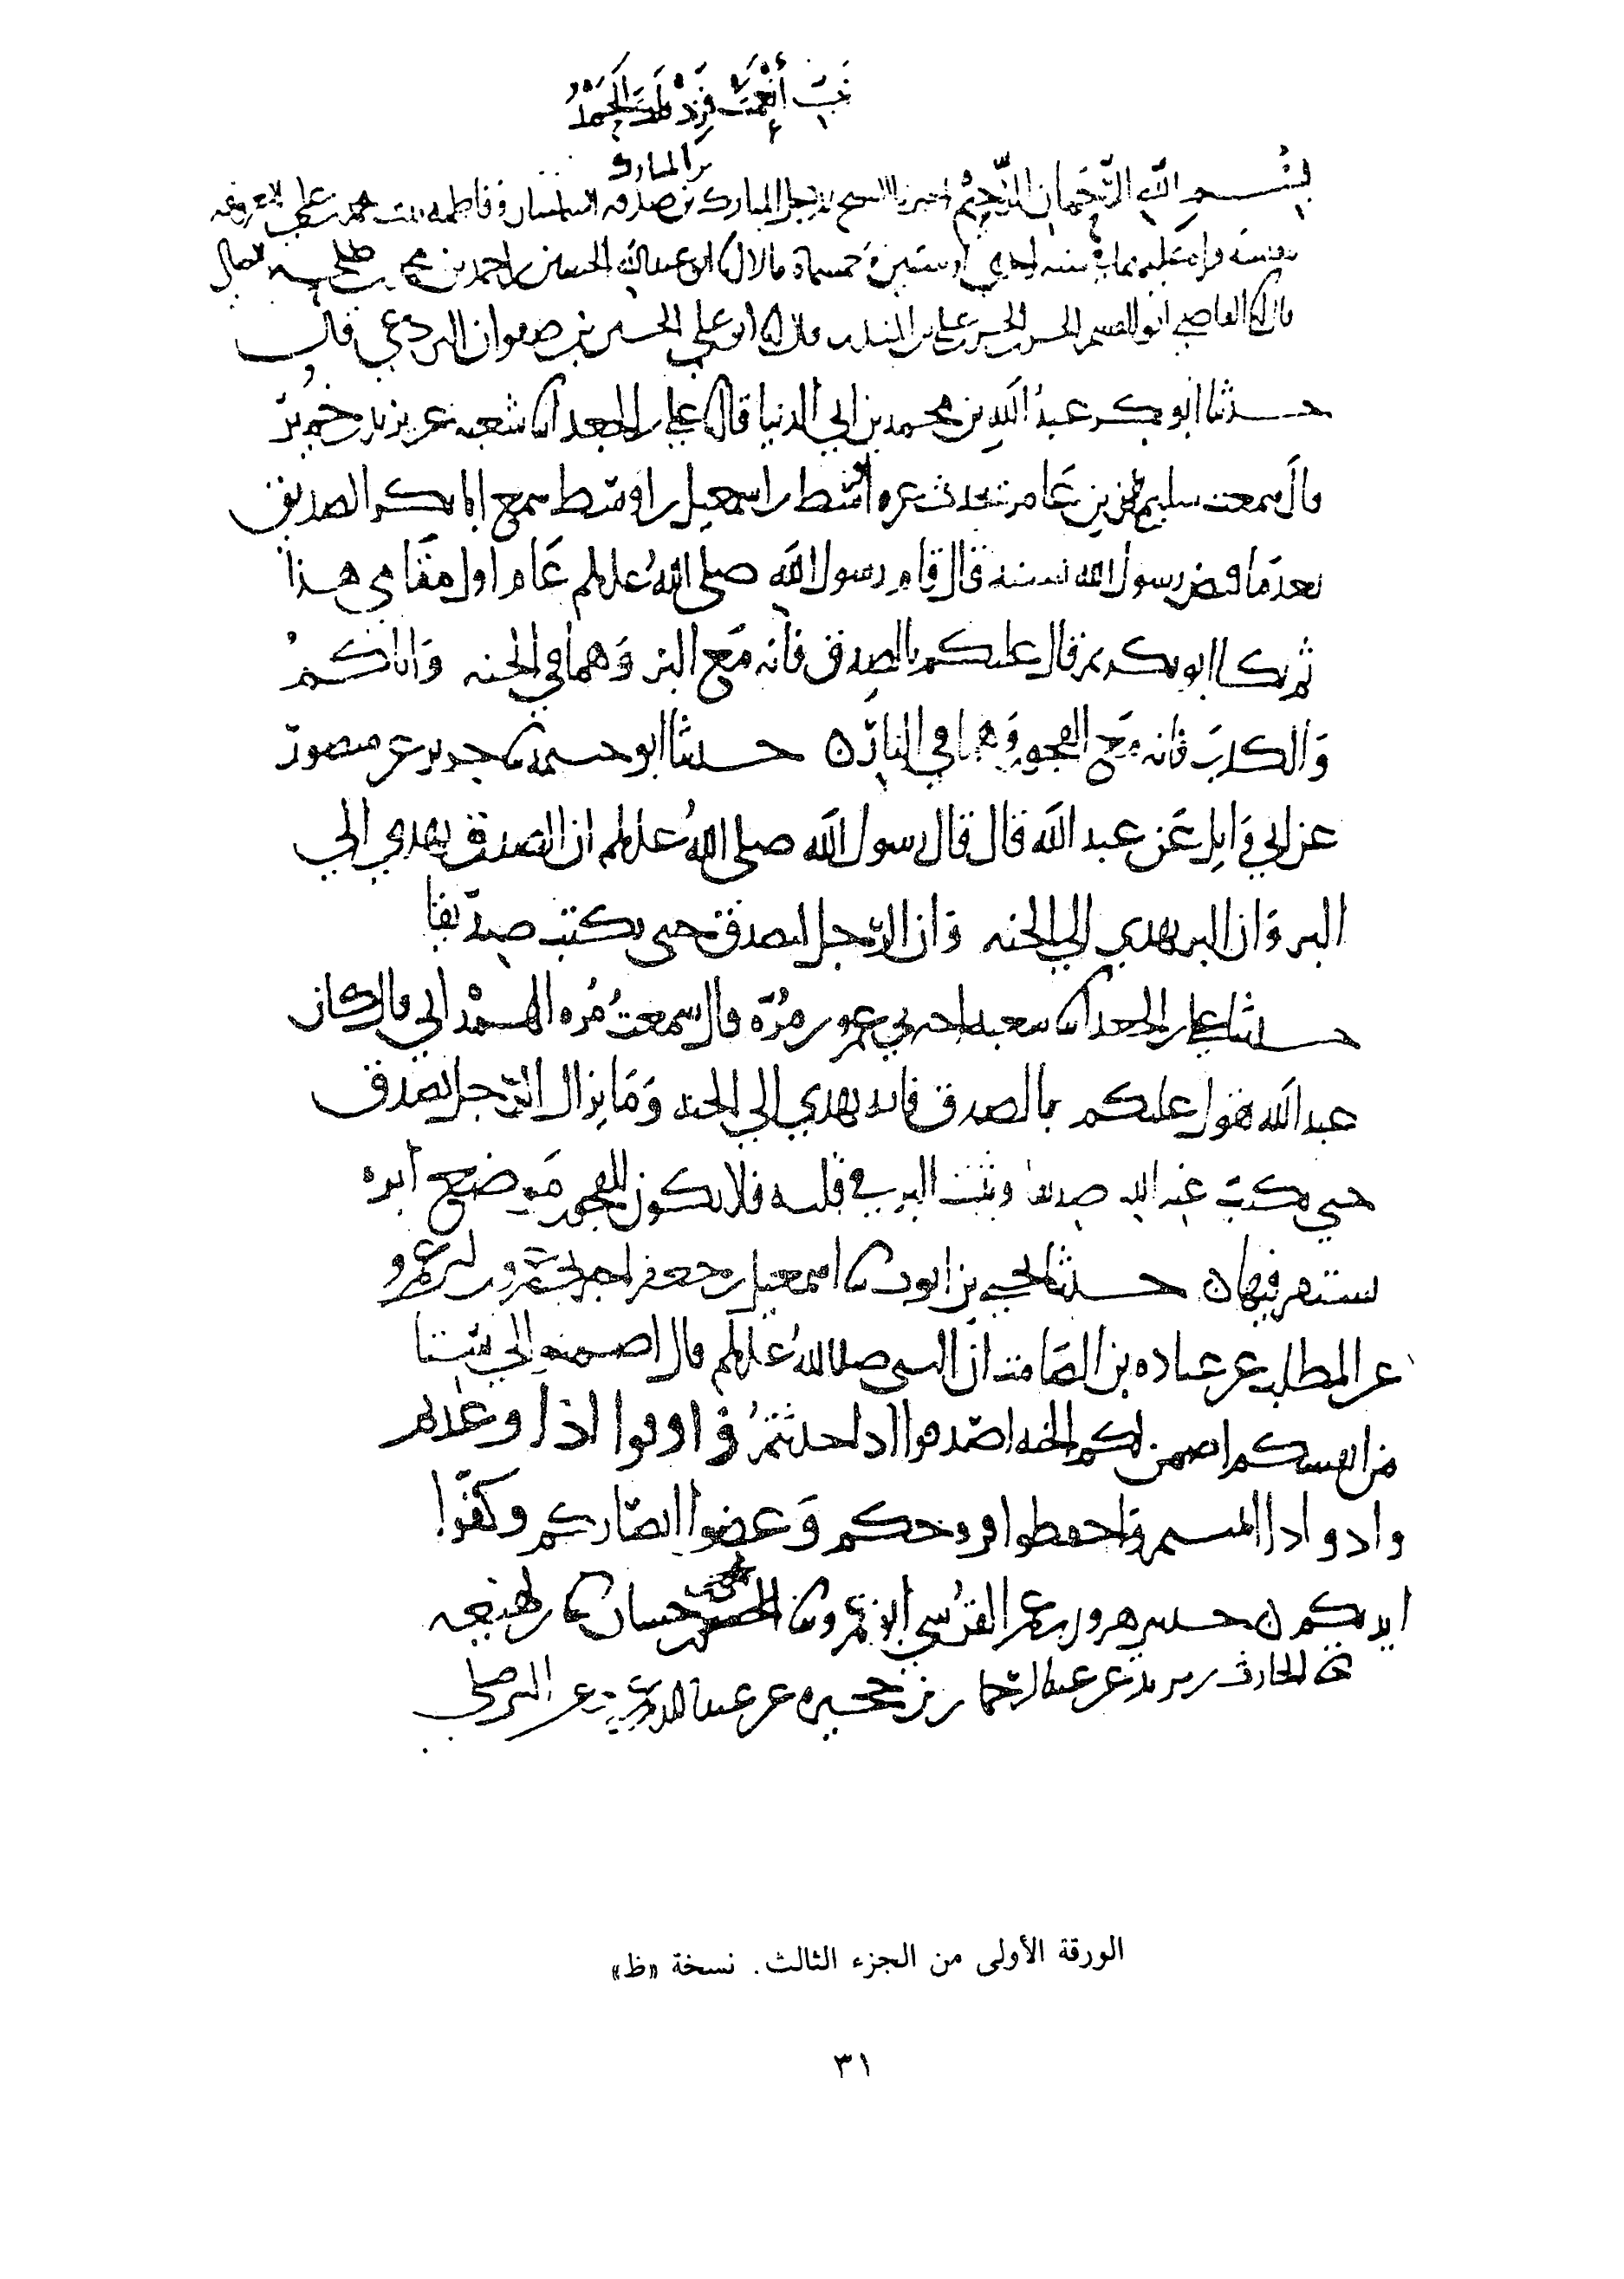 رب أنعمت فزد لك الحمد
بن المبارك
بسم الله الرحمان الرحيم اخبرنا المبارك بن صدقه وفاطمه بنت محمد بن علي
قراه عليهما في سنه احدى وستين وخمسماه قالا انا ابو عبد الله الحسين بن احمد بن محمد بن طلحه
قال انا القاضي ابو القسم الحسن بن الحسن بن علي بن المنذر قال انا ابو علي الحسين بن صفوان البردعي قال
حدثنا ابو بكر عبد الله بن محمد بن ابي الدنيا قال علي بن الجعد انا شعبه عن يزيد بن خمير
قال سمعت سليم بن عامر يحدث عن اوسط بن اسمعيل بن اوسط سمع ابا بكر الصديق
بعد ما قبض رسول الله بسنه قال قام رسول الله صلى الله عليه وسلم عام اول مقامي هذا
ثم بكا ابو بكر ثم قال عليكم بالصدق فانه مع البر وهما في الجنه واياكم
والكذب فانه مع الفجور وهما في النار ن حدثنا ابو خيثمه نا جرير عن منصور
عن ابي وايل عن عبد الله قال قال رسول الله صلى الله عليه وسلم ان الصدق يهدي الى
البر وان البر يهدي الى الجنه وان الرجل ليصدق حتى يكتب صديقا
حدثنا علي بن الجعد انا شعبه اخبرني عمرو بن مره قال سمعت مره الهمداني قال كان
عبد الله يقول عليكم بالصدق فانه يهدي الى الجنه وما يزال الرجل يصدق
حتى يكتب عند الله صديقا ويثبت البر في قلبه فلا يكون للفجور موضع ابره
يستقر فيها ن حدثنا يحيى بن ايوب نا اسمعيل بن جعفر اخبرني عمرو بن ابي عمرو
عن المطلب عن عباده بن الصامت ان النبي صلى الله عليه وسلم قال اضمنوا لي ستا
من انفسكم اضمن لكم الجنه اصدقوا اذا حدثتم و اوفوا اذا وعدتم
وادوا اذا ائتمنتم واحفظوا فروجكم وغضوا ابصاركم وكفوا
ايديكم ن حدثني هرون بن عمر القرشي ابو عمرو نا حسان نا بن لهيعه
نا الحارث بن يزيد عن عبد الرحمان بن حجيره عن عبد الله بن عمرو عن النبي صلى
الورقة الأولى من الجزء الثالث. نسخة «ظ»
٣١